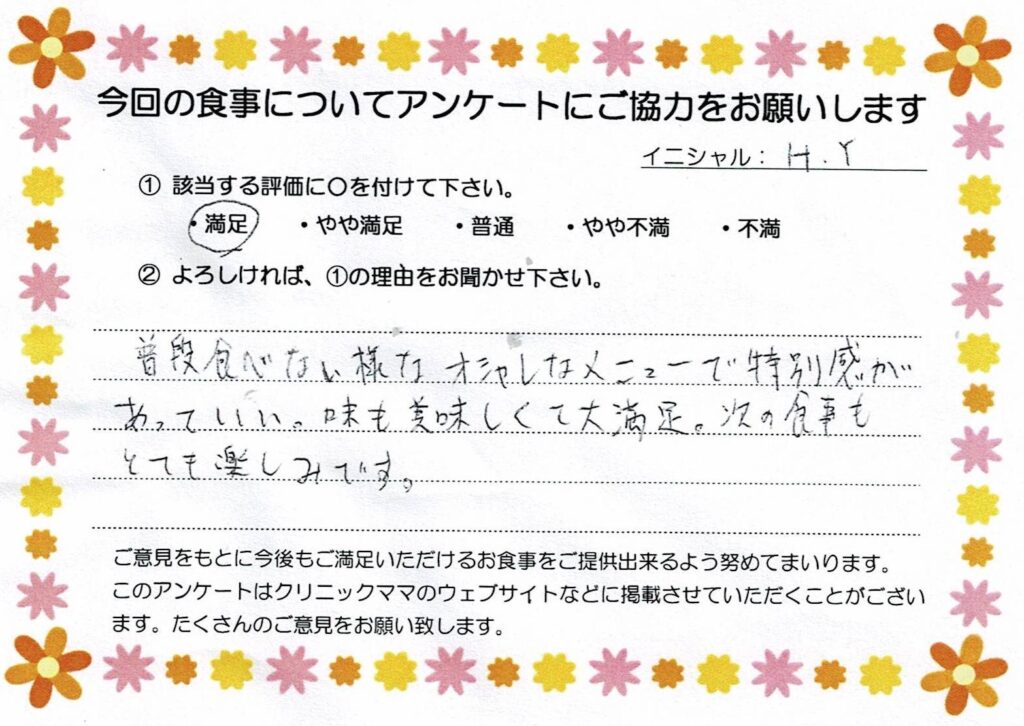 今回の食事についてアンケートにご協力をお願いします
イニシャル： H.Y
① 該当する評価に〇を付けて下さい。
・満足 ・やや満足 ・普通 ・やや不満 ・不満
② よろしければ、①の理由をお聞かせ下さい。
普段食べない様なオシャレなメニューで特別感が
あっていい。味も美味しくて大満足。次の食事も
とても楽しみです。
ご意見をもとに今後もご満足いただけるお食事をご提供出来るよう努めてまいります。
このアンケートはクリニックママのウェブサイトなどに掲載させていただくことがござい
ます。たくさんのご意見をお願い致します。